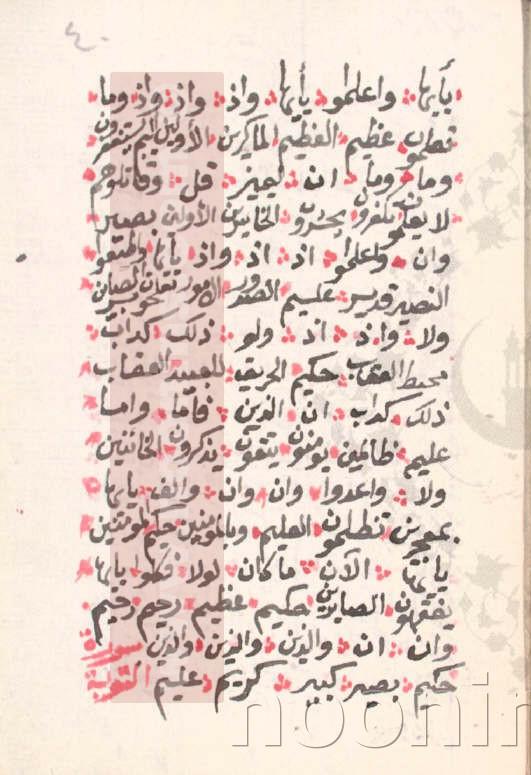 ٤٠
يأيها واعلموا يأيها واذ واذ واذ وما
تعلمون عظيم العظيم الماكرين الأولين اليم يستغفرون
وما وما ان ليميز قل وقاتلوهم
لا يعلمون تكفرون يحشرون الخاسرين الأولين بصير
وان واعلموا اذ اذ واذ يأيها واطيعوا
النصير قدير عليم الصدور الامور تفلحون الصابرين
ولا واذ اذ ولو ذلك كداب
محيط العقاب حكيم الحريق للعبيد العقاب
ذلك كداب ان الذين فاما واما
عليم ظالمين يومنون يتقون يذكرون الخائنين
ولا واعدوا وان وان والف يايها
يعجزون تظلمون العليم وبالمومنين حكيم المومنين
يايها الآن ما كان لولا فكلوا يايها
يفقهون الصابرين حكيم عظيم رحيم رحيم
وان ان والذين والذين والذين سورة
حكيم بصير كبير كريم عليم التوبة